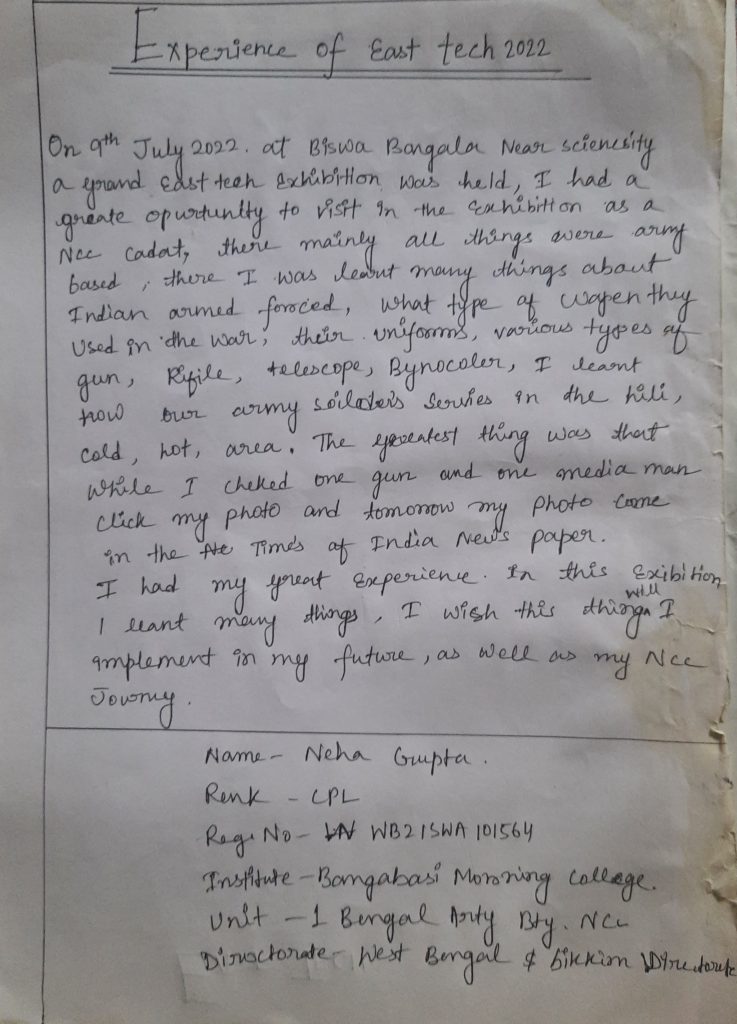 Experience of East tech 2022
On 9th July 2022. at Biswa Bangala Near sciencsity
a grand East tech Exhibition was held, I had a
greate opurtunity to visit in the Eanhibition as a
Ncc Cadat, there mainly all things were army
based, there I was leant many things about
Indian armed foroced, what type of wapen they
used in the war, their uniforms, various types of
gun, Rifile, telescope, Bynocoler, I leant
how our army soilders servies in the hili,
cold, hot, area. The greatest thing was that
while I cheked one gun and one media man
click my photo and tomorrow my photo come
in the the Times of India News paper.
I had my great Experience. In this Exibition
I leant many things, I wish this things will I
implement in my future, as well as my Ncc
Journy.
Name - Neha Gupta.
Renk - CPL
Rege No - WB21SWA101564
Institute - Bangabasi Morning College.
Unit - 1 Bengal Arty Bty. Ncc
Diroctorate - West Bengal & Sikkim Directorate